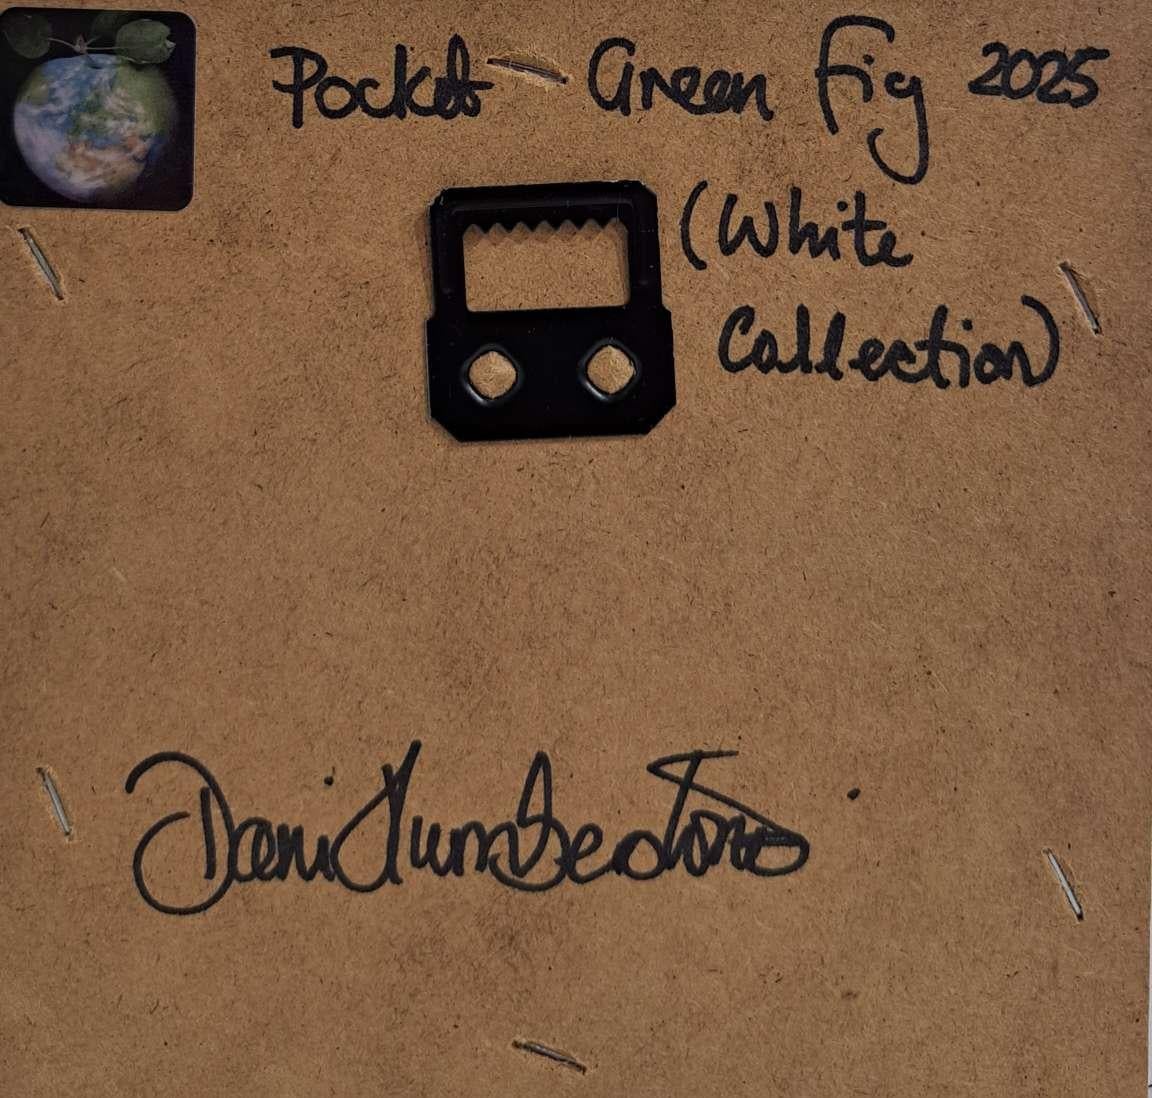 Pocket Green Fig 2025
(White
Collection)
Dani Humberstone